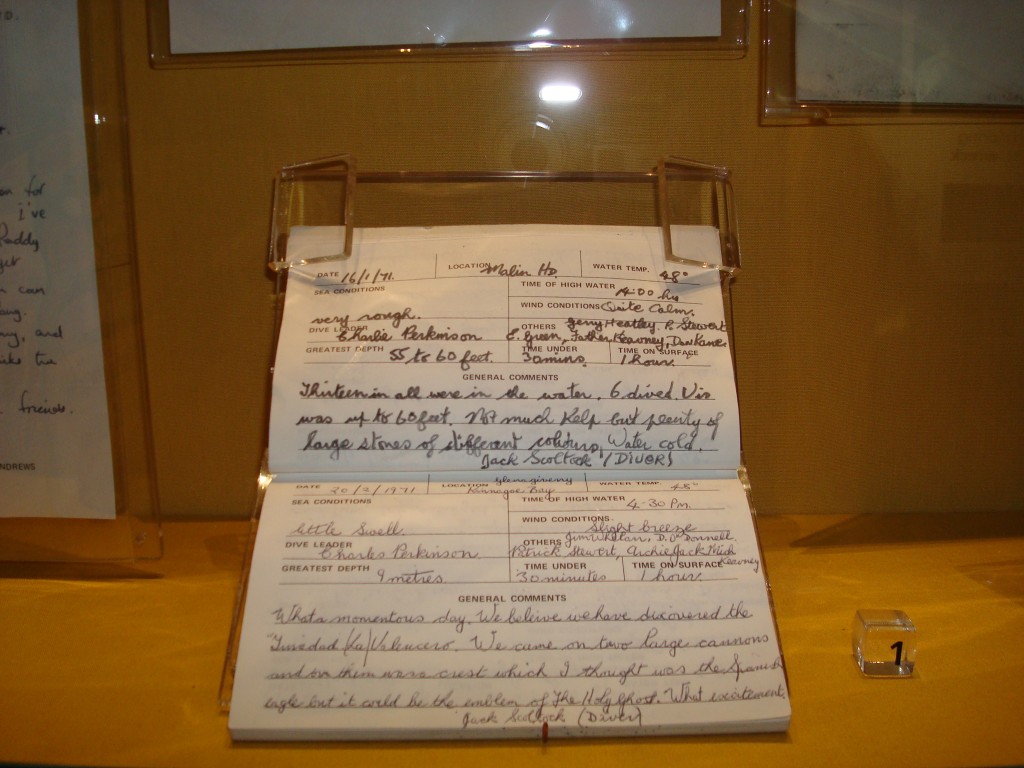 D.
r.
en for
i've
Paddy
get
n can
and
friends.
NDREWS
DATE 16/1/71. LOCATION Malin Hd. WATER TEMP. 48°
SEA CONDITIONS TIME OF HIGH WATER 14:00 hrs
very rough. WIND CONDITIONS Quite Calm.
DIVE LEADER Charlie Perkinson OTHERS Gerry Heatley. P. Stewart
E. Green, Father Kearney, Dan Rance
GREATEST DEPTH 55 to 60 feet. TIME UNDER 30 mins. TIME ON SURFACE 1 hour.
GENERAL COMMENTS
Thirteen in all were in the water. 6 dived. Vis
was up to 60 feet. Not much Kelp but plenty of
large stones of different colours. Water cold.
Jack Scoltock (DIVER)
DATE 20/2/1971 LOCATION Glenagivney Kinnagoe Bay WATER TEMP. 45°
SEA CONDITIONS TIME OF HIGH WATER 4:30 P.m.
little Swell. WIND CONDITIONS. Slight breeze
DIVE LEADER Charles Perkinson OTHERS Jim Whelan, D. O'Donnell.
Patrick Stewart, Archie Jack Mich Kearney
GREATEST DEPTH 9 metres. TIME UNDER 30 minutes TIME ON SURFACE 1 hour.
GENERAL COMMENTS
What a momentous day. We beleive we have discovered the
Trinidad (La) Valencero. We came on two large cannons
and on them was a crest which I thought was the Spanish
eagle but it could be the emblem of The Holy Ghost. What excitement.
Jack Scoltock (Diver)
1